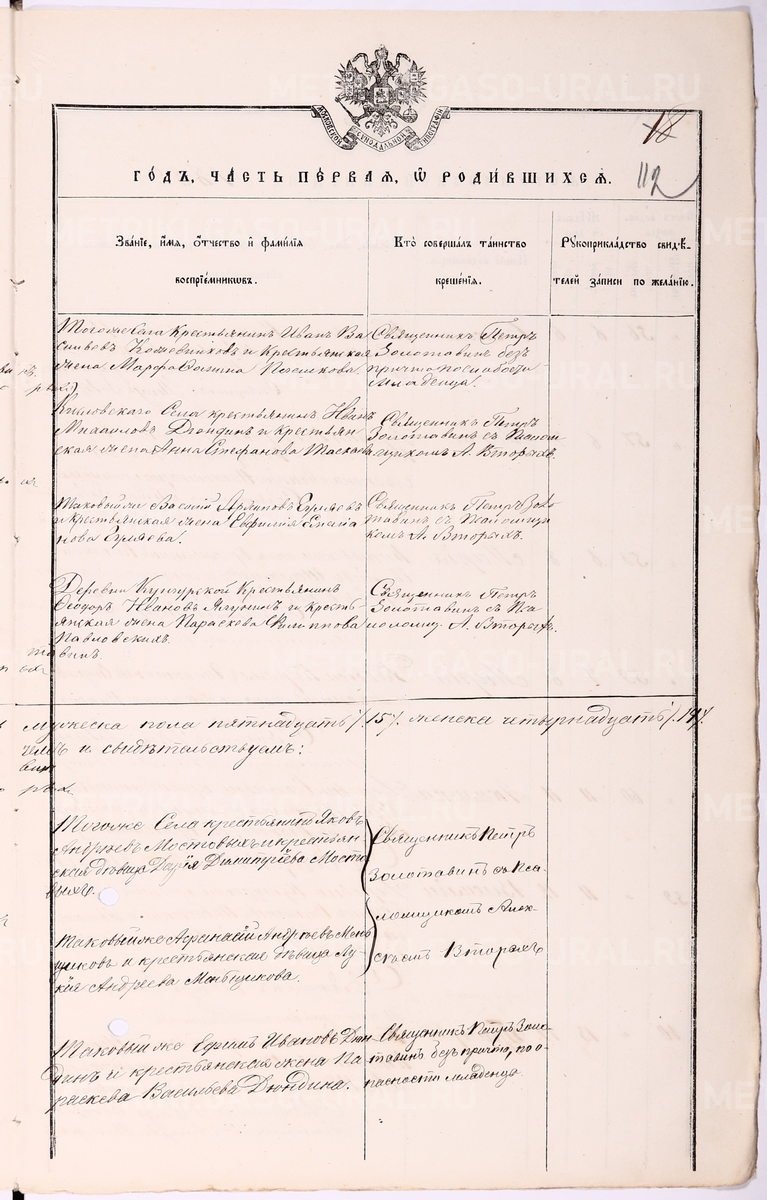 МОСКОВСКОЙ СѴНОДАЛЬНОЙ ТИПОГРАФІИ
18
112
ГО́ДЪ, ЧА́СТЬ ПЕ́РВАЯ, Ѡ҆ РОДИ́ВШИХСЯ.
Зва́нїе, и҆́мя, ѻ҆́тчество и҆ фами́лїя
воспрїе́мниковъ.
Кто̀ соверша́лъ та́инство
креще́нїя.
Рꙋкоприкла́дство свидѣ́-
телей за́писи по жела́нїю.
Тогоже Села Крестьянинъ Иванъ Ва
сильевъ Кожевниковъ и Крестьянская
жена Марфа Фомина
Священникъ Петръ
Золотавинъ безъ
причта по слабости
младенца.
Села крестьянинъ Иванъ
Михаиловъ Дюндинъ и Крестьян
ская жена Анна Стефанова
Священникъ Петръ
Золотавинъ съ Псалом
щикомъ А. Вторыхъ.
Таковый же Василій
и крестьянская жена Евфимия
нова
Священникъ Петръ Золо
тавинъ съ Псаломщи
комъ А. Вторыхъ.
Деревни Кунгурской Крестьянинъ
Феодоръ Ивановъ и Кресть
янская жена Параскева Филиппова
Павловскихъ.
Священникъ Петръ
Золотавинъ съ Пса
ломщ. А. Вторыхъ.
мужеска пола пятнадцать /15/. женска четырнадцать /14/.
и свидѣтельствуемъ:
Тогоже Села крестьянинъ Яковъ
Андреевъ Мостовыхъ и крестьян
ская дѣвица Дарія Димитріева Мосто
выхъ.
Священникъ Петръ
Золотавинъ съ Пса
ломщикомъ Алек-
Вторыхъ
Таковый же Афанасій Андреевъ Мень
щиковъ и крестьянская дѣвица Лу
кія Андреева Меньщикова.
Таковый же Ефимъ Ивановъ Дюн
динъ и крестьянская жена Па
раскева Васильева Дюндина.
Священникъ Петръ Золо
тавинъ безъ причта, по о
пасности младенца.